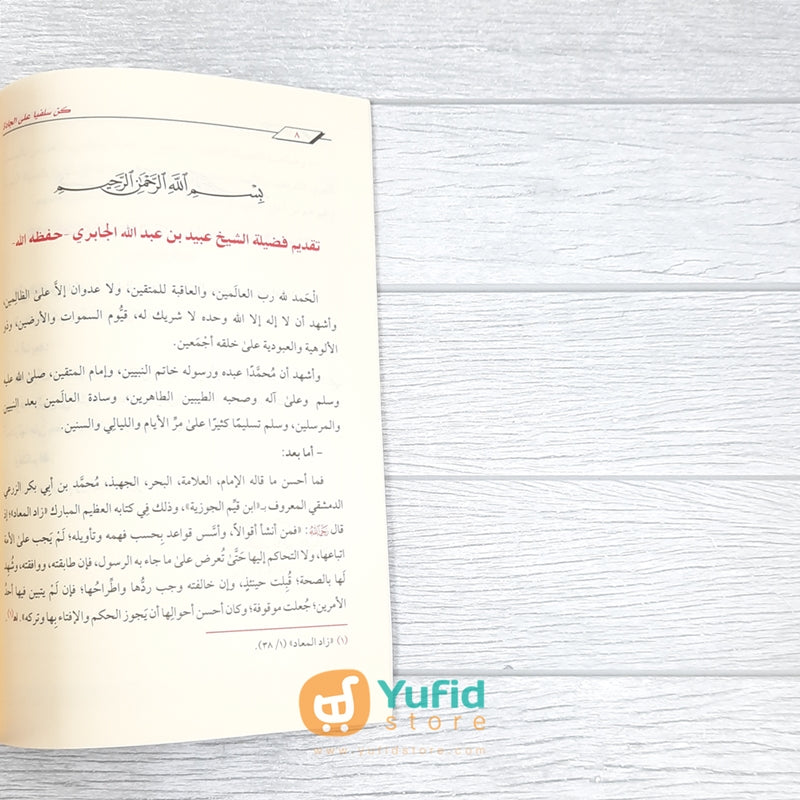 كن سلفيا على الجادة
٨
بِسْمِ اللَّهِ الرَّحْمَٰنِ الرَّحِيمِ
تقديم فضيلة الشيخ عبيد بن عبد الله الجابري -حفظه الله-
الْحَمد لله رب العالَمين، والعاقبة للمتقين، ولا عدوان إلاَّ علىٰ الظالِمين،
وأشهد أن لا إله إلا الله وحده لا شريك له، قيُّوم السموات والأرضين، وذو
الألوهية والعبودية علىٰ خلقه أجْمَعين.
وأشهد أن مُحمَّدًا عبده ورسوله خاتم النبيين، وإمام المتقين، صلىٰ الله عليه
وسلم وعلىٰ آله وصحبه الطيبين الطاهرين، وسادة العالَمين بعد النبيين
والمرسلين، وسلم تسليمًا كثيرًا علىٰ مرِّ الأيام والليالِي والسنين.
- أما بعد:
فما أحسن ما قاله الإمام، العلامة، البحر، الجهبذ، مُحمَّد بن أبِي بكر الزرعي
الدمشقي المعروف بـ«ابن قيِّم الجوزية»، وذلك فِي كتابه العظيم المبارك «زاد المعاد»؛ إذ
قال رحمه الله: «فمن أنشأ أقوالاً، وأسَّس قواعد بِحسب فهمه وتأويله؛ لَمْ يَجب علىٰ الأمة
اتباعها، ولا التحاكم إليها حَتَّىٰ تُعرض علىٰ ما جاء به الرسول، فإن طابقته، ووافقته، وشُهِد
لَها بالصحة؛ قُبِلت حينئذٍ، وإن خالفته وجب ردُّها واطِّراحُها؛ فإن لَمْ يتبين فيها أحدُ
الأمرين؛ جُعلت موقوفة؛ وكان أحسن أحوالِها أن يَجوز الحكم والإفتاء بِها وتركه». اهـ(١).
(١) «زاد المعاد» (١/ ٣٨).
Yufid
store
www.yufidstore.com